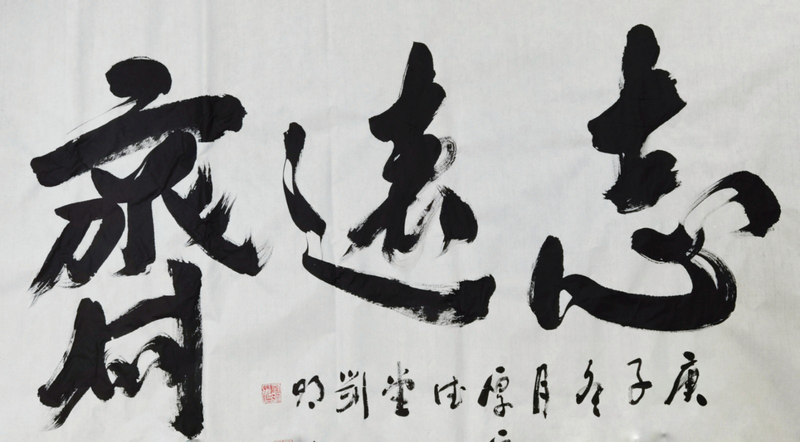 志遠齋
庚子冬月厚德堂劉明